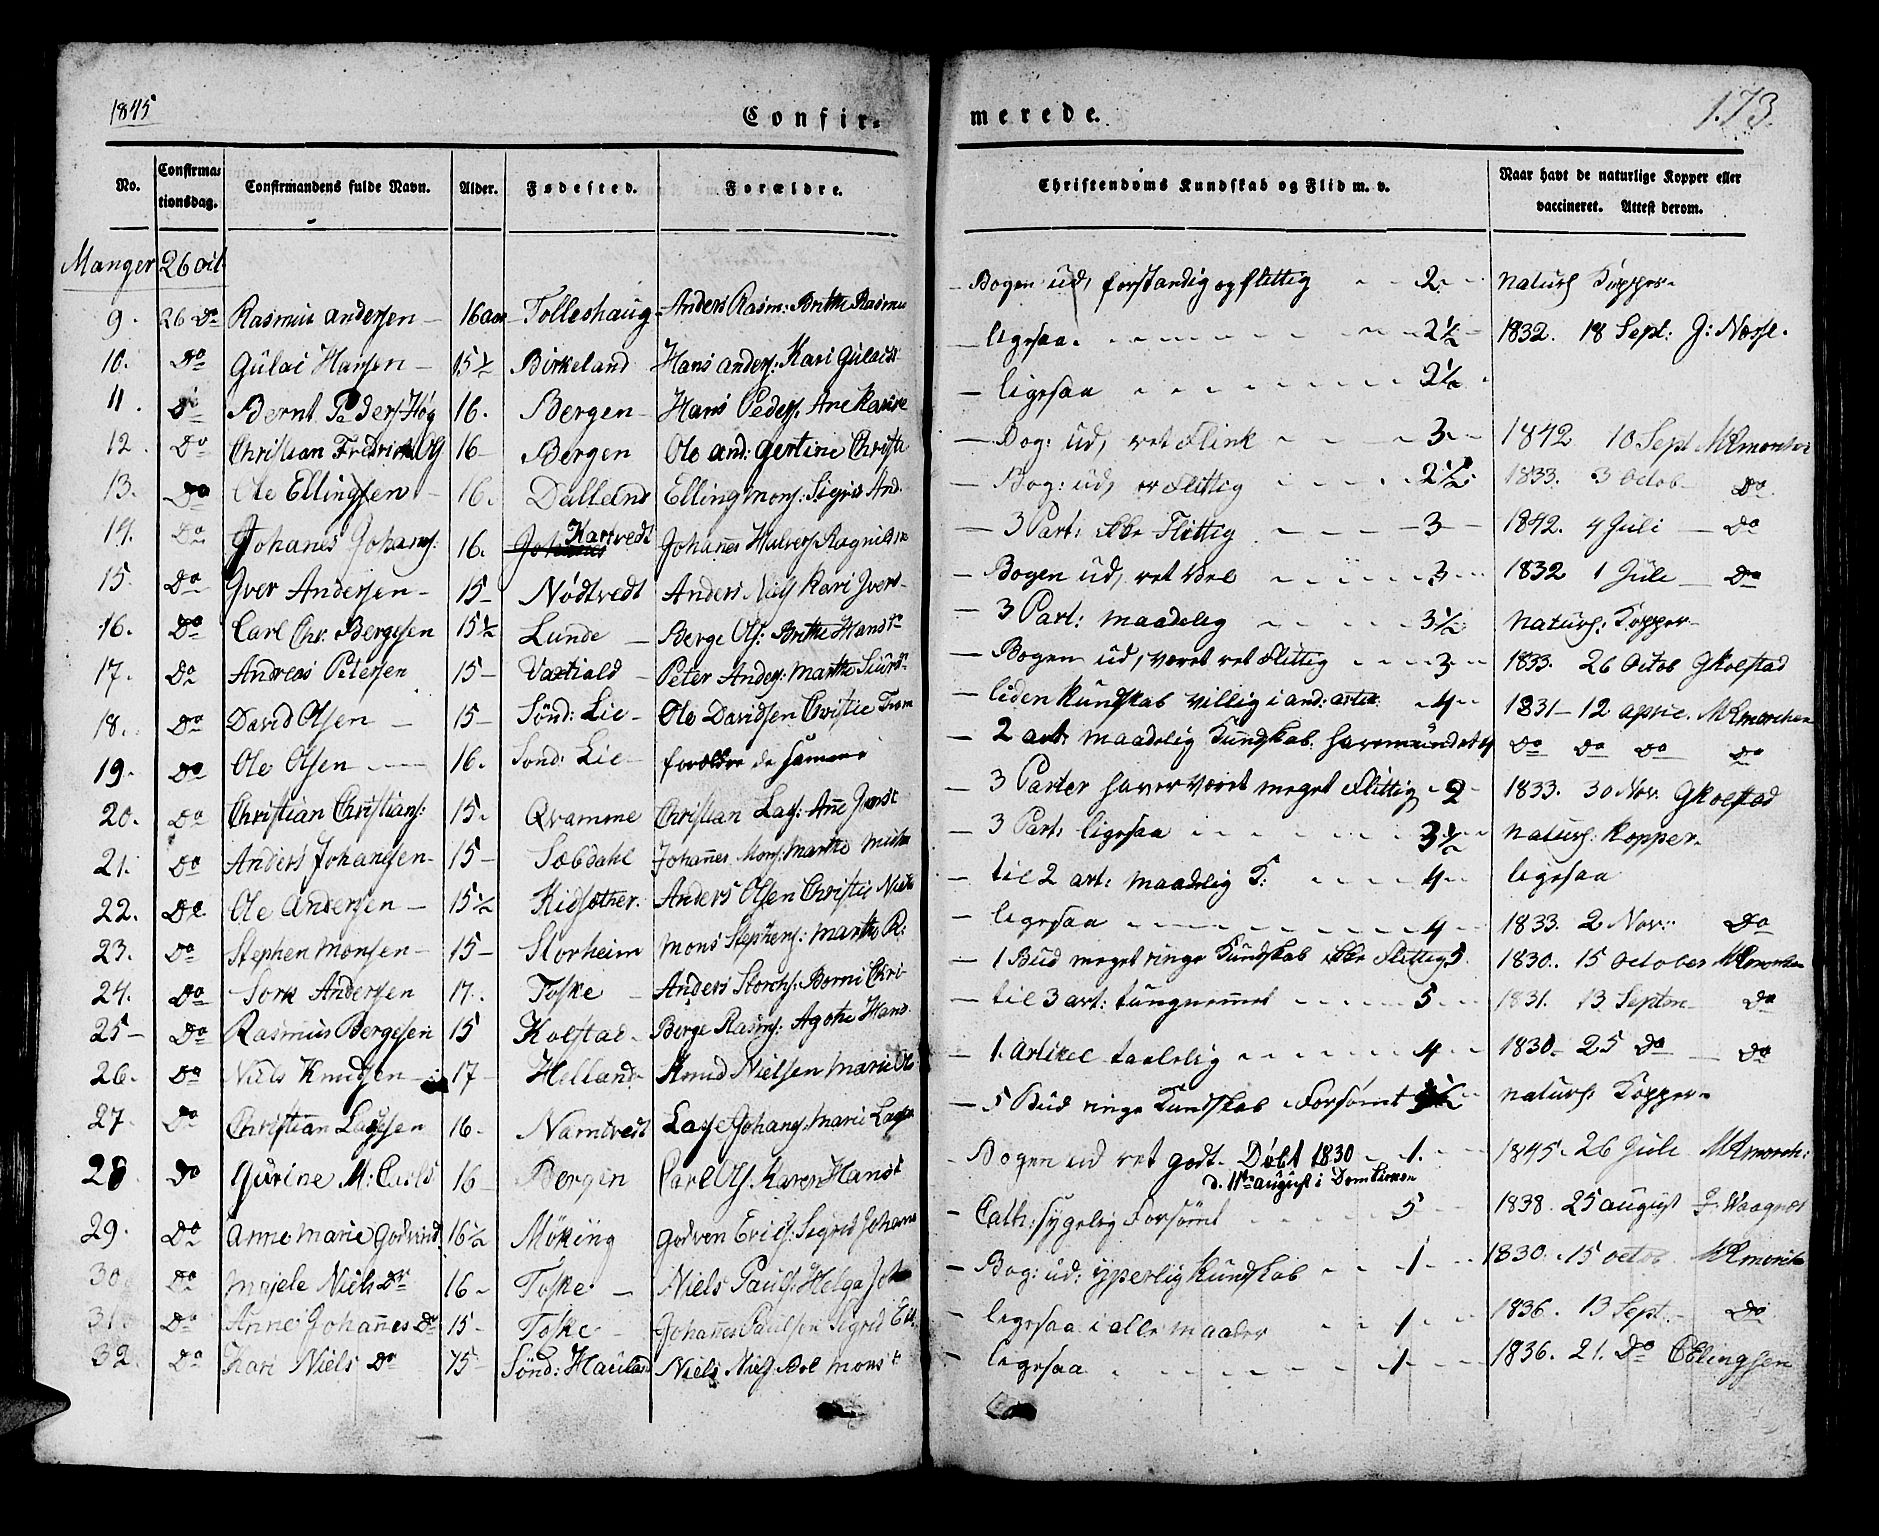 1845
Confir-
merede.
173.
No.
Confirma-
tionsdag.
Confirmandens fulde Navn.
Alder.
Fødested.
Forældre.
Christendoms Kundskab og Flid m. v.
Naar havt de naturlige Kopper eller
vaccineret. Attest derom.
Manger 26 Oct
9. 26 Do Rasmus Andersen – 16 aar Tolleshaug – Anders Rasm: Brithe Rasmus – Bogen ud, forstandig og flittig – 2 – Naturl Kopper.
10. Do Gulai Hansen – 15½ Birkeland Hans Anders: Kari Gulaisd – ligesaa. – 2½ – 1832. 18 Sept: G: Næsse.
11. Do Bernt Peders Høg 16. Bergen – Hans Peders. Ane Karine – ligesaa – 2½
12. Do Christian Fredrik Ols 16 – Bergen Ole And: Gertine Christi – Bog: ud, ret Flink – 3 – 1842 10 Sept
13. Do Ole Ellingsen – 16. Dalland Elling Mons: Sigrid And. – Bog: ud, er Flittig – 2½ 1833. 3 Octob – Do
14. Do Johanes Johans: 16. Kartvedt Johanes Halvers Ragnild – 3 Part: ikke Flittig – 3 – 1842. 4 Juli – Do
15. Do Iver Andersen – 15 – Nødtvedt Anders Niels Kari Ivers – Bogen ud, ret Vel – 3 – 1832 1 Jule – Do
16. Do Carl Chr. Bergesen 15½ Lunde – Berge Ols: Brithe Hansd – 3 Part: maadelig – 3½ Naturl: Kopper –
17. Do Andreas Petersen 15 – Peter Anders: Marthe Siurd – Bogen ud, været ret Flittig – 3 – 1833. 26 Octob G Kolstad
18. Do David Olsen – 15 – Sønd: Lie – Ole Davidsen Christie – liden Kundskab villig i and: artik – 4 – 1831 – 12 April.
19. Do Ole Olsen – 16. Sond: Lie – forældre de samme – 2 art: maadelig Kundskab. Do Do Do Do
20. Do Christian Christians: 15. Qvamme Christian Lass: Ane Jensd – 3 Parter haver været meget Flittig – 2 1833. 30 Nov. G Kolstad
21. Do Anders Johansen – 15 – Sæbdahl Johanes Mons: Marthe – 3 Part: ligesaa – 3½ Naturl: Kopper.
22. Do Ole Andersen – 15½ Kidsæther. Anders Olsen Christie Niels – til 2 art: maadelig K: – 4 – ligesaa
23. Do Stephen Monsen – 15 – Storheim Mons Stephens: Marthe R: – ligesaa – 4 – 1833. 2 Nov: Do
24. Do Andersen 17. Toske – Anders – 1 Bud meget ringe Kundskab ikke Flittig 5. 1830. 15 October
25 – Do Rasmus Bergesen 15 Kolstad – Berge Rasms: Agothe Hans. – til 3 art: tungnemmet – 5 – 1831. 13 Septem – Do
26. Do Niels Knudsen – 17 – Helland – Knud Nielsen Marie Ole – 1. Artikel taalelig – 4 – 1830 – 25 Do – Do
27. Do Christian Lassesen 16. Namtvedt Lasse Johans: Mari Lasse – 5 Bud ringe Kundskab Forsømt Naturl: Kopper –
28 Do Gurine M: Carls 16 – Bergen Carl Ols. Karen Hansd – Bogen ud ret godt. Døbt 1830 – 1. 1845. 26 Juli
d. 11te august i Domkirken
29. Do Anne Marie Godvind 16½ Møking Godven Erics: Sigrid Johans – Cath: sygelig Forsømt – 5 – 1838. 25 august
30. Do Majele Niels Dr 16 – Toske – Niels Pauls: Helga Joh – Bog: ud: yperlig Kundskab – 1 – 1830. 15 octob
31. Do Anne Johanes Dr 15 – Toske – Johanes Paulsen Sigrid – ligesaa i alle maader – 1 – 1836. 13 Sept. – Do
32. Do Kari Niels Dr 15 – Sønd: Hauland Niels Niels Mons – ligesaa – 1 – 1836. 21. Do Ellingsen